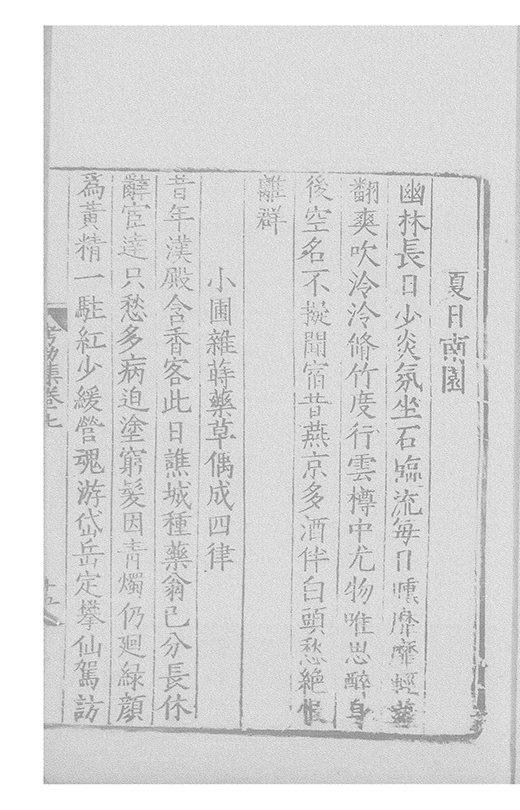 夏日南園
幽林長日少炎氛坐石臨流每日曛靡靡輕
翻爽吹泠泠脩竹度行雲樽中尤物唯思醉身
後空名不擬聞宿昔燕京多酒伴白頭愁絕悵
離群
小圃雜蒔藥草偶成四律
昔年漢殿含香客此日譙城種藥翁已分長休
辭宦達只愁多病迫塗窮髮因青燭仍廻緑顏
爲黃精一駐紅少緩營魂游岱岳定攀仙駕訪
考功集卷七